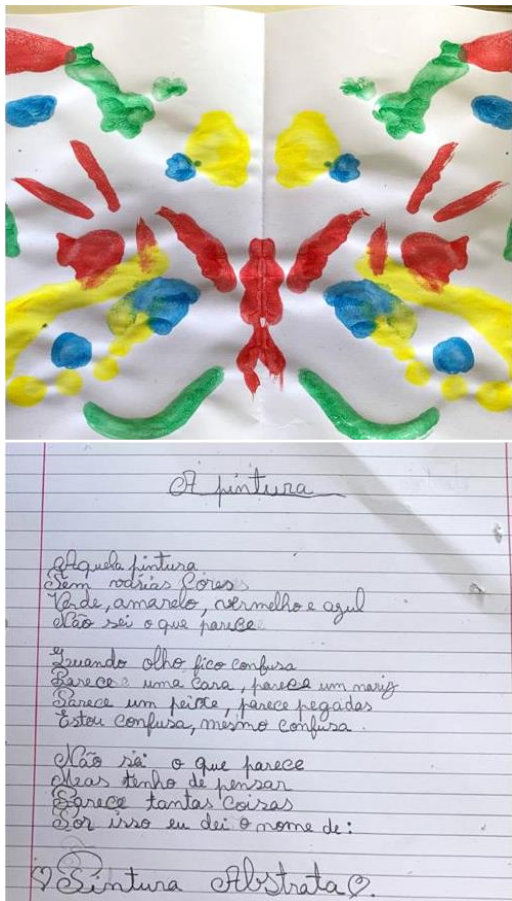 A pintura
Aquela pintura
Tem várias Cores
Verde, amarelo, vermelho e azul
Não sei o que parece
Quando olho fico confusa
Parece uma cara, parece um nariz
Parece um peixe, parece pegadas
Estou confusa, mesmo confusa.
Não sei o que parece
Mas tenho de pensar
Parece tantas coisas
Por isso eu dei o nome de:
Pintura Abstrata.